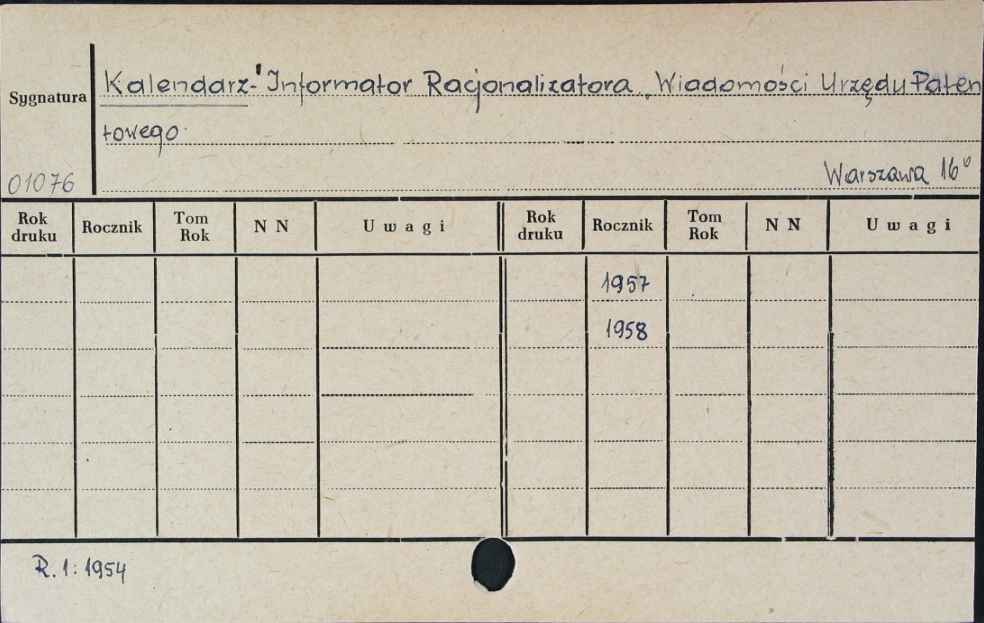 Sygnatura
Kalendarz-Informator Racjonalizatora „Wiadomości Urzędu Paten
towego
01076
Warszawa 16°
Rok druku Rocznik Tom Rok N N Uwagi Rok druku Rocznik Tom Rok N N Uwagi
1957
1958
R. 1: 1954